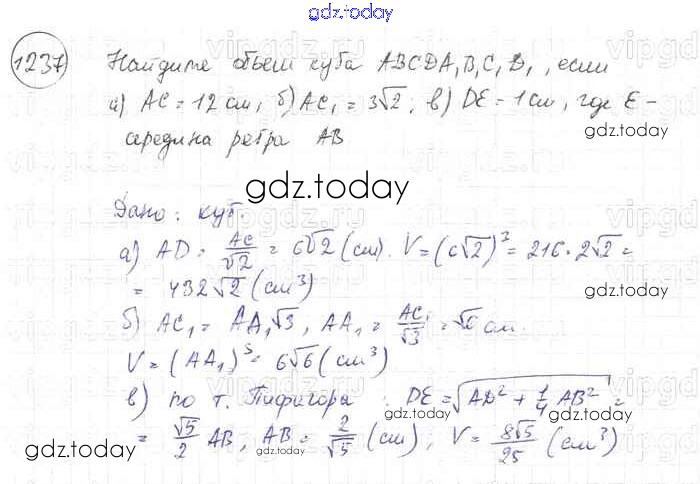 gdz.today
1237 Найдите объем куба ABCDA₁B₁C₁D₁, если
а) AC = 12 см, б) AC₁ = 3√2; в) DE = 1 см, где E -
gdz.today
середина ребра AB
gdz.today
Дано: куб.
а) AD = AC/√2 = 6√2 (см). V = (6√2)³ = 216 · 2√2 =
= 432√2 (см³)
gdz.today
б) AC₁ = AA₁√3, AA₁ = AC₁/√3 = √6 см.
V = (AA₁)³ = 6√6 (см³)
в) по т. Пифагора: DE = √(AD² + 1/4 AB²) =
gdz.today
= √5/2 AB, AB = 2/√5 (см); V = 8√5/25 (см³)
gdz.today
gdz.today